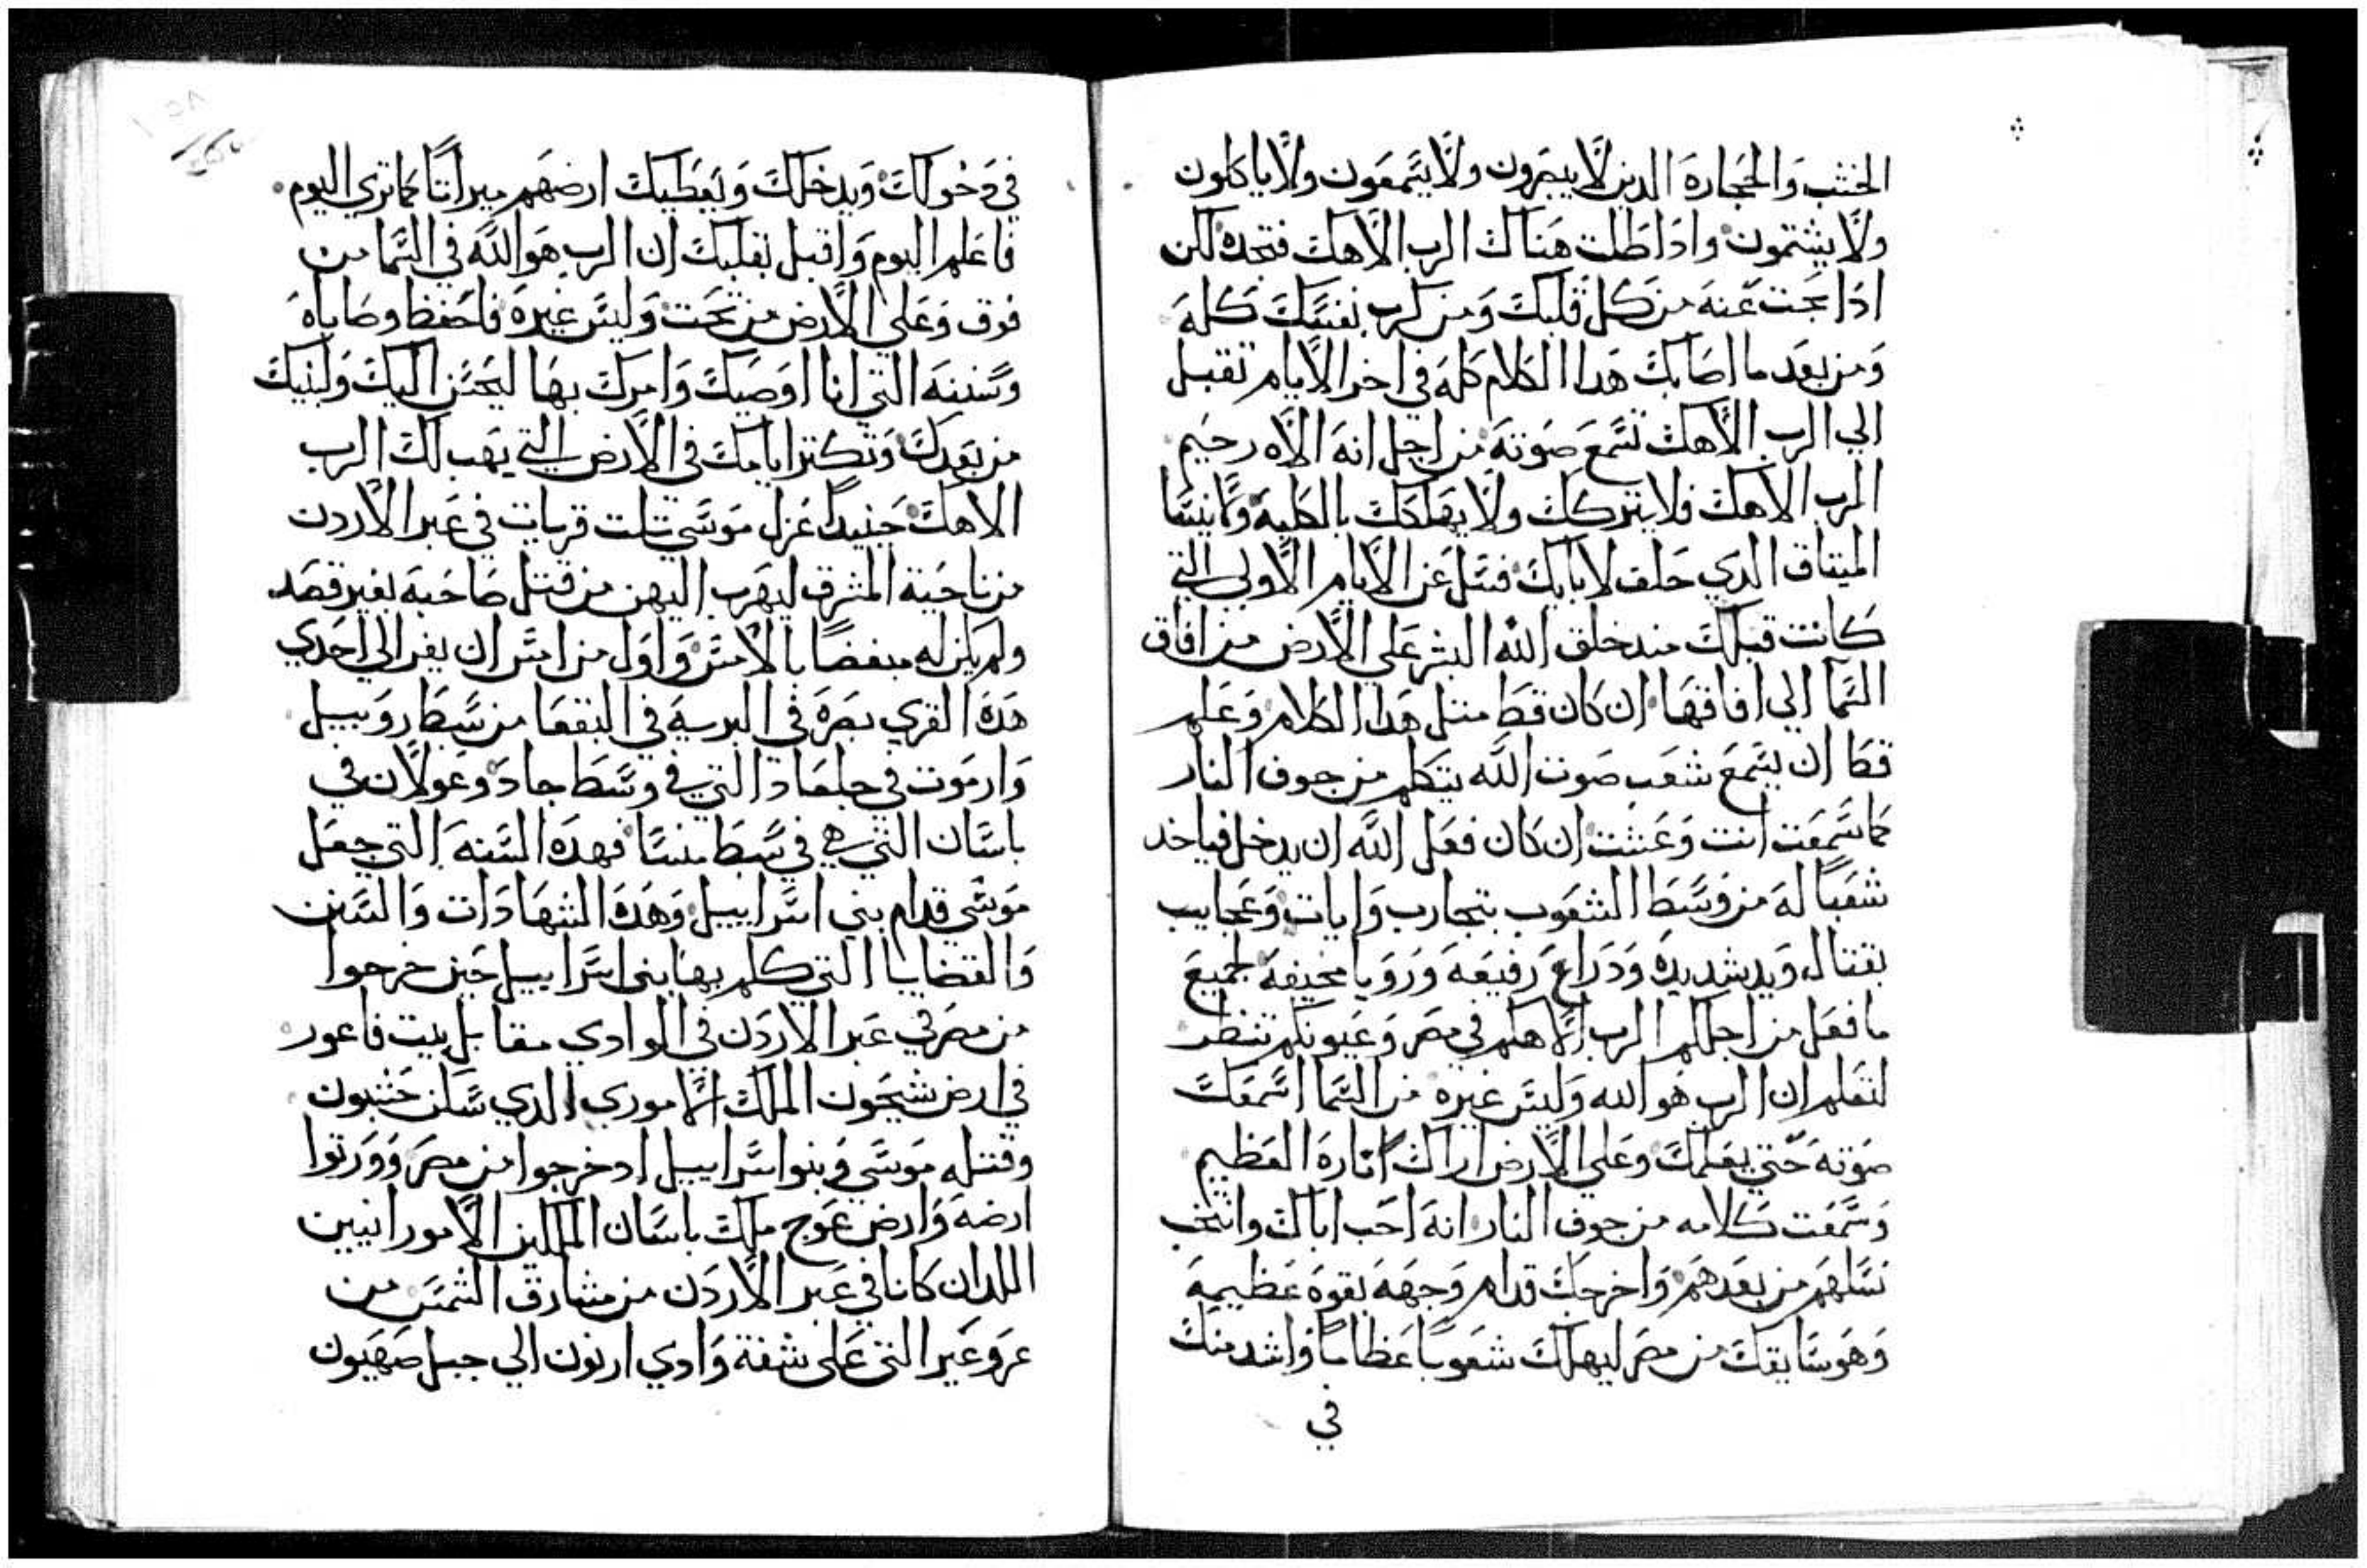 الخشب والحجارة الدين لا يبصرون ولا يسمعون ولا ياكلون
ولا يشتمون وادا طلبت هناك الرب الاهك فتجده لكن
ادا بحت عنه من كل قلبك ومن كرب نفسك كله
ومن بعد ما اصابك هدا الكلام كله في اخر الايام تقبل
الي الرب الاهك تسمع صوته من اجل انه الاه رحيم
الرب الاهك فلا يتركك ولا يهلكك بالكلية ولا ينسا
الميتاق الدي حلف لابايك فسل عن الايام الاولي التي
كانت قبلك مند خلق الله البشر علي الارض من افاق
السما الي افاقها ان كان قط متل هدا الكلام وعلم
قط ان يسمع شعب صوت الله يتكلم من جوف النار
كما سمعت انت وعشت ان كان فعل الله ان يدخل فياخد
شعبا له من وسط الشعوب بتجارب وايات وعجايب
بقتال ويد شديدة ودراع رفيعة ورويا مخيفة لجميع
ما فعل من اجلكم الرب الاهكم في مصر وعيونكم تنظر
لتعلم ان الرب هو الله وليس غيره من السما اسمعك
صوته حتي يعلمك وعلي الارض اراك اناره العظيم
وسمعت كلامه من جوف النار انه احب اباك وانتخب
نسلهم من بعدهم واخرجك قدام وجهه بقوة عظيمة
وهو سايقك من مصر ليهلك شعوبا عظاما واشد منك
في
في دخولك ويدخلك ويعطيك ارضهم ميراتا كما تري اليوم
فاعلم اليوم واقبل بقلبك ان الرب هو الله في السما من
فوق وعلي الارض من تحت وليس غيره فاحفظ وصاياه
وسننه التي انا اوصيك وامرك بها ليحسن اليك ولبنيك
من بعدك وتكتر ايامك في الارض التي يهب لك الرب
الاهك حينيدا عزل موسي تلت قريات في عبر الاردن
من ناحية المشرق ليهرب اليهن من قتل صاحبه بغير قصد
ولم يكن له مبغضا بالامس واول من امس ان يفر الي احدي
هده القري بصرة في البرية في البقعا من سبط روبيل
وارموت في جلعاد التي في وسط جاد وعولان في
باسان التي هي في سبط منسا فهده السنة التي جعل
موسي قدام بني اسراييل وهده الشهادات والسنن
والقضايا التي كلم بها بني اسراييل حين خرجوا
من مصر في عبر الاردن في الوادي مقابل بيت فاعور
في ارض شيحون الملك الاموري الدي سكن حشبون
وقتله موسي وبنوا اسراييل اد خرجوا من مصر وورتوا
ارضه وارض عوج ملك باسان الملكين الامورانيين
اللدان كانا في عبر الاردن من مشارق الشمس من
عروعير التي علي شفة وادي ارنون الي جبل صهيون